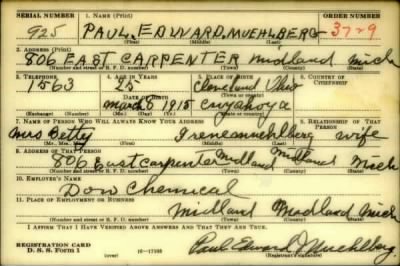 SERIAL NUMBER 1. NAME (Print) ORDER NUMBER
925 PAUL EDWARD MUEHLBERG 3729
(First) (Middle) (Last)
2. ADDRESS (Print)
806 EAST CARPENTER Midland Mich
(Number and street or R. F. D. number) (Town) (County) (State)
3. TELEPHONE 4. AGE IN YEARS 5. PLACE OF BIRTH 6. COUNTRY OF CITIZENSHIP
1563 25 Cleveland Ohio
DATE OF BIRTH (Town or county)
March 8 1915 Cuyahoga
(Mo.) (Day) (Yr.) (State or country)
7. NAME OF PERSON WHO WILL ALWAYS KNOW YOUR ADDRESS 8. RELATIONSHIP OF THAT PERSON
Mrs Betty Irene Muehlberg wife
(Mr., Mrs., Miss) (First) (Middle) (Last)
9. ADDRESS OF THAT PERSON
806 East Carpenter Midland Midland Mich
(Number and street or R. F. D. number) (Town) (County) (State)
10. EMPLOYER'S NAME
Dow Chemical
11. PLACE OF EMPLOYMENT OR BUSINESS
Midland Midland Mich
(Number and street or R. F. D. number) (Town) (County) (State)
I AFFIRM THAT I HAVE VERIFIED ABOVE ANSWERS AND THAT THEY ARE TRUE.
REGISTRATION CARD
D. S. S. Form 1 (over) Paul Edward Muehlberg
(Registrant's signature)